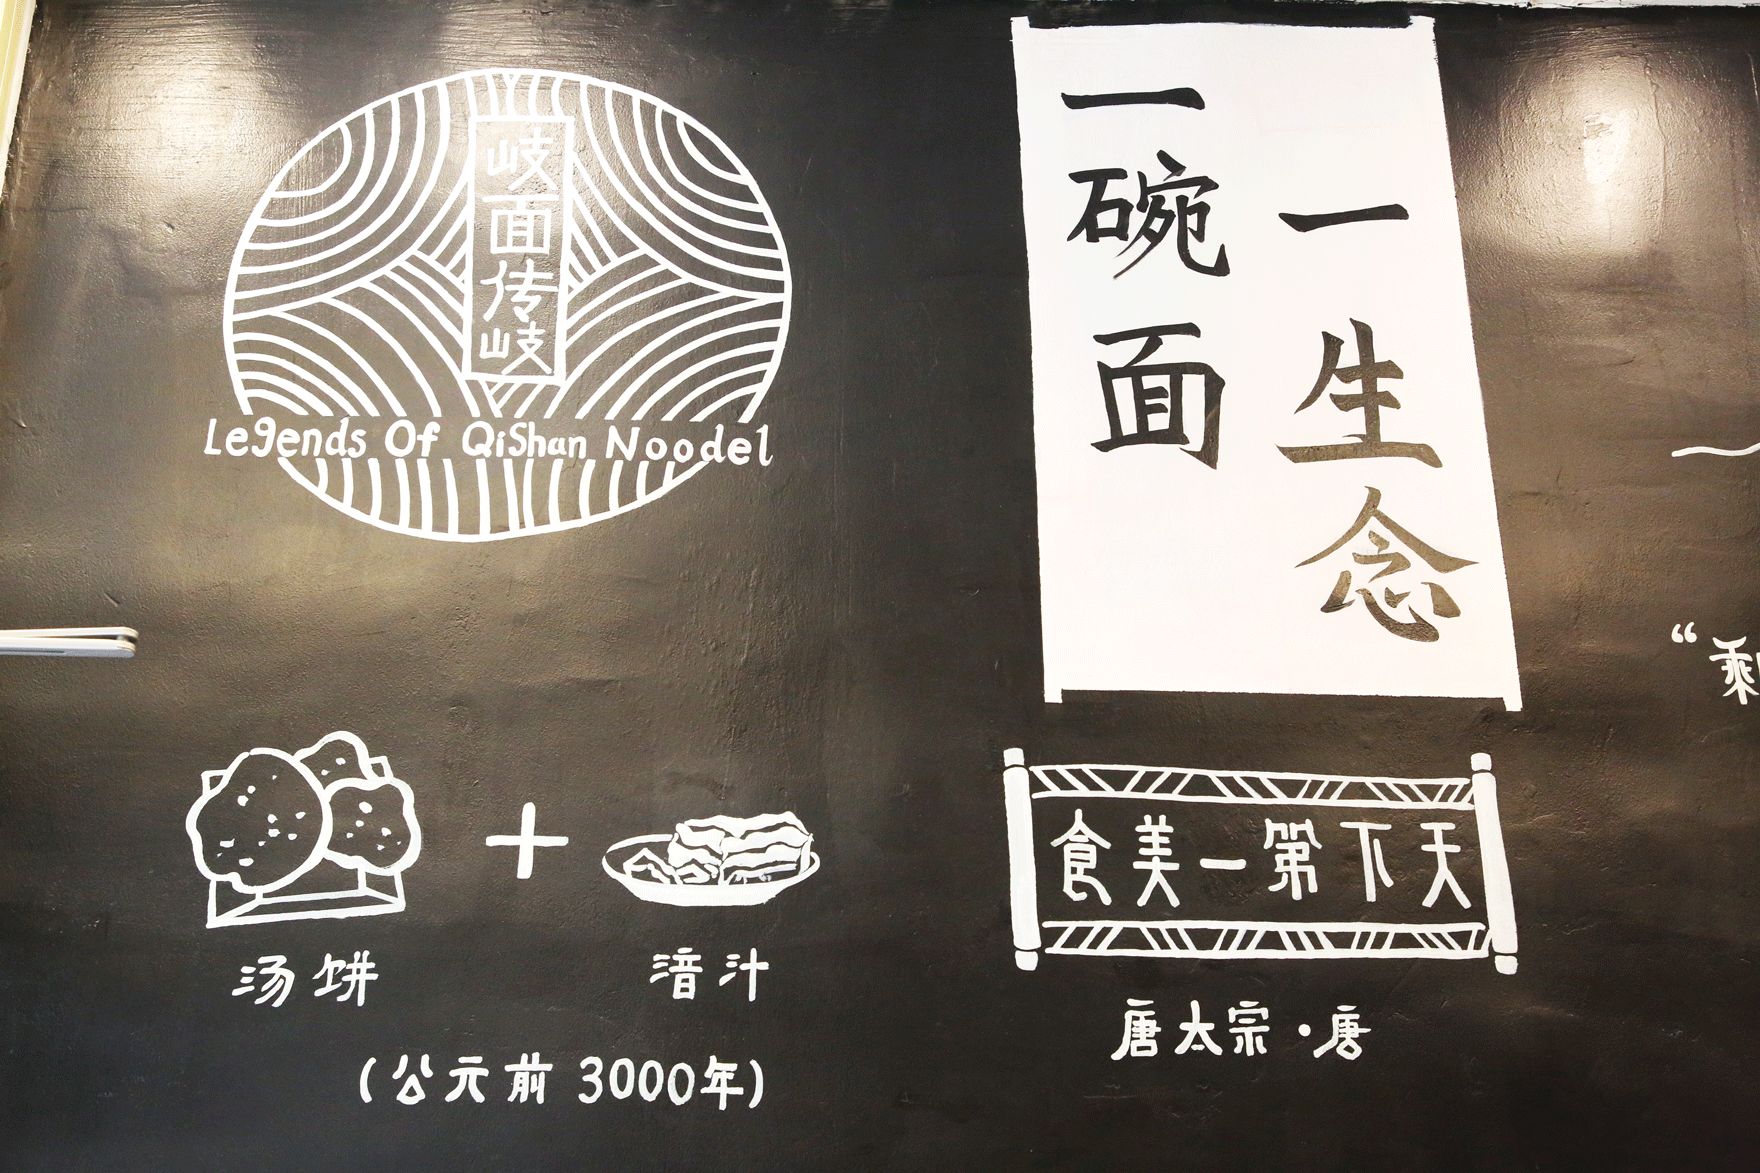 岐面传岐
Legends Of QiShan Noodel
一碗面
一生念
汤饼 + 湆汁
(公元前 3000年)
天下第一美食
唐太宗·唐